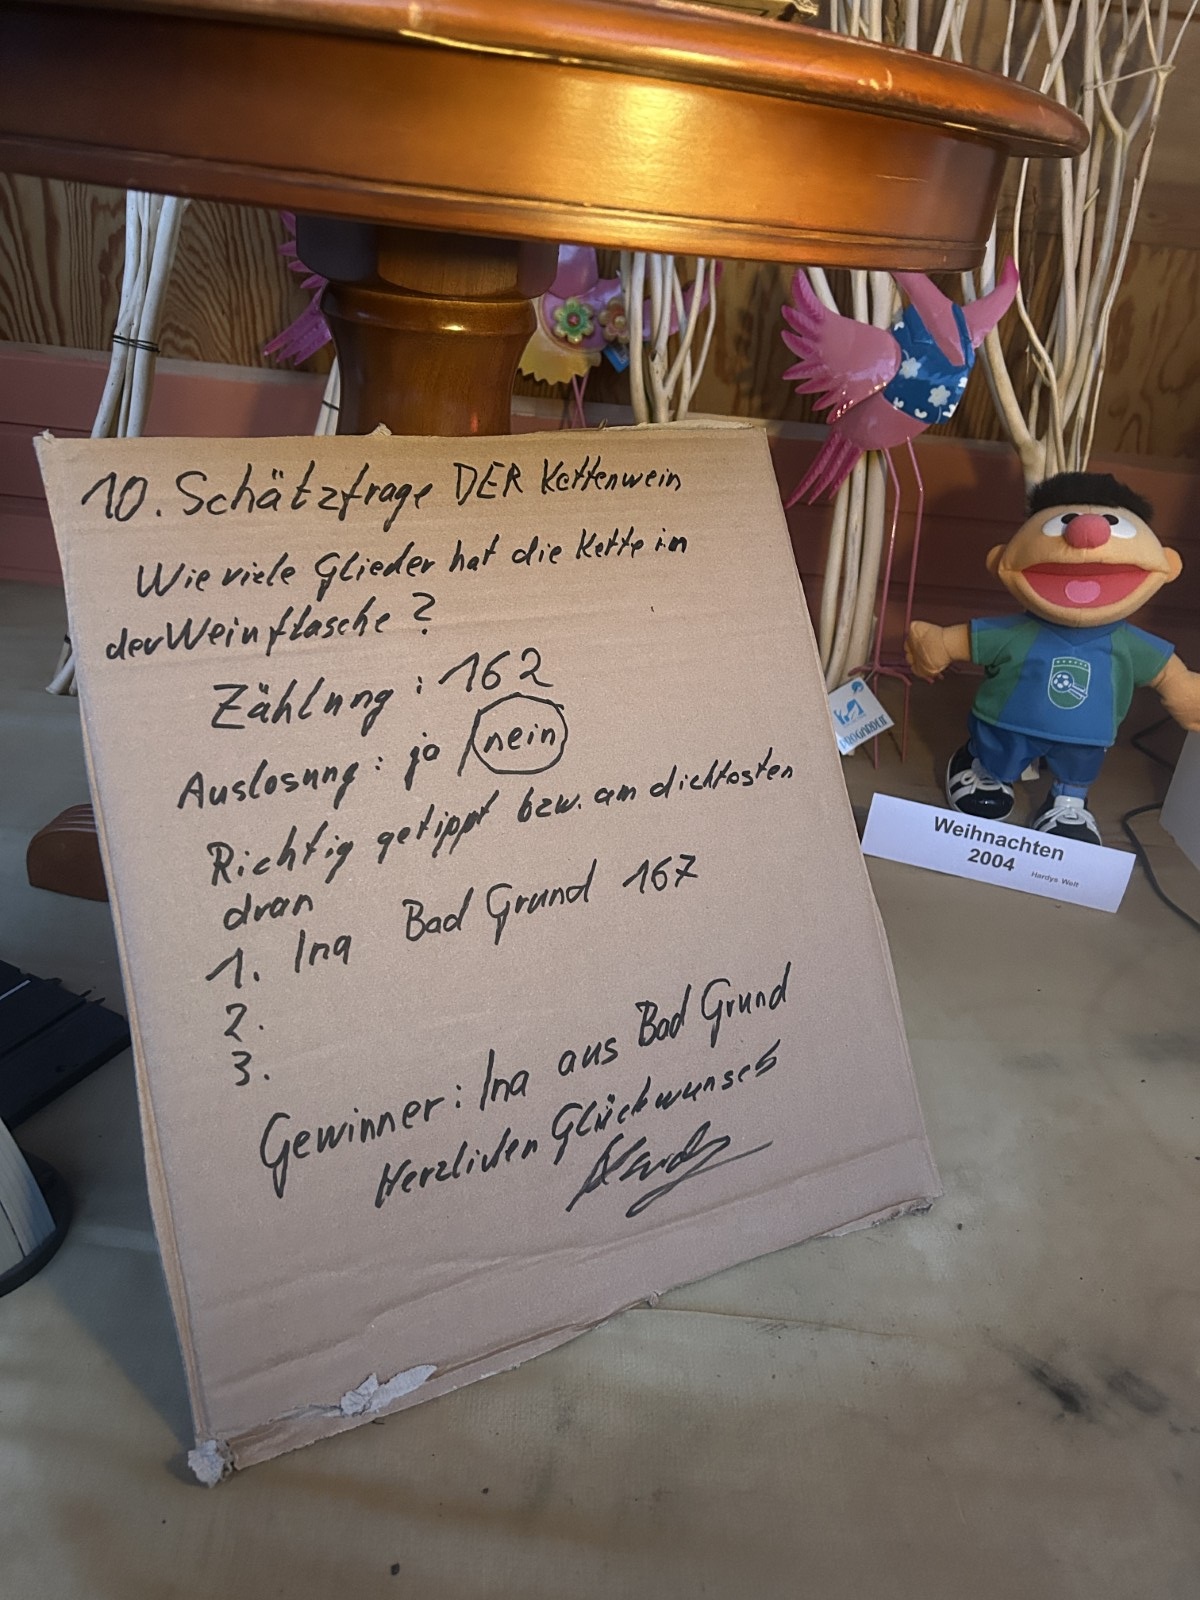 10. Schätzfrage DER Kettenwein
Wie viele Glieder hat die Kette im
der Weinflasche ?
Zählung : 162
Auslosung : ja / nein
Richtig getippt bzw. am dichtesten
dran
1. Ina Bad Grund 167
2.
3.
Gewinner : Ina aus Bad Grund
Herzlichen Glückwunsch
Hardy
PROGARDEN
Weihnachten
2004 Hardys Welt